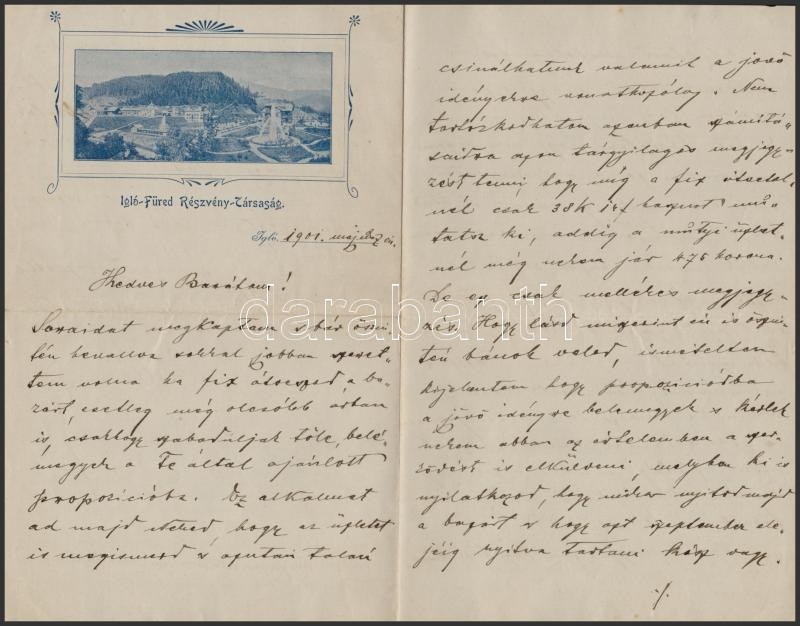 Igló-Füred Részvény-Társaság.
Igló, 1901. máj. én.
Kedves Barátom!
Soraidat megkaptam s bár őszin-
tén bevallva sokkal jobban szeret-
tem volna ha fix átveszed a ba-
zárt, esetleg még olcsóbb árban
is, csakhogy szabaduljak tőle, belé-
megyek a Te által ajánlott
propozicióba. Ez alkalmat
ad majd Neked, hogy az üzletet
is megismerd s azután talán
csinálhatunk valamit a jövő
idényekre vonatkozólag. Nem
tartózkodhatom azonban számitá-
saidra azon tárgyilagos megjegy-
zést tenni hogy míg a fix
nél csak 38K 14f hasznot mu-
tatsz ki, addig a üzlet-
nél még nekem jár 475 korona.
De ez csak mellékes megjegy-
zés. Hogy lásd miszerint én is őszin-
tén bánok veled, ismételten
kijelentem hogy propoziciódba
a jövő idényre belemegyek s kérlek
nekem abban az értelemben a szer-
ződést is elküldeni, melyben ki is
nyilatkozod, hogy mikor nyitod majd
a bazárt s hogy azt szeptember ele-
jéig nyitva tartani kész vagy.
./.
darabanth